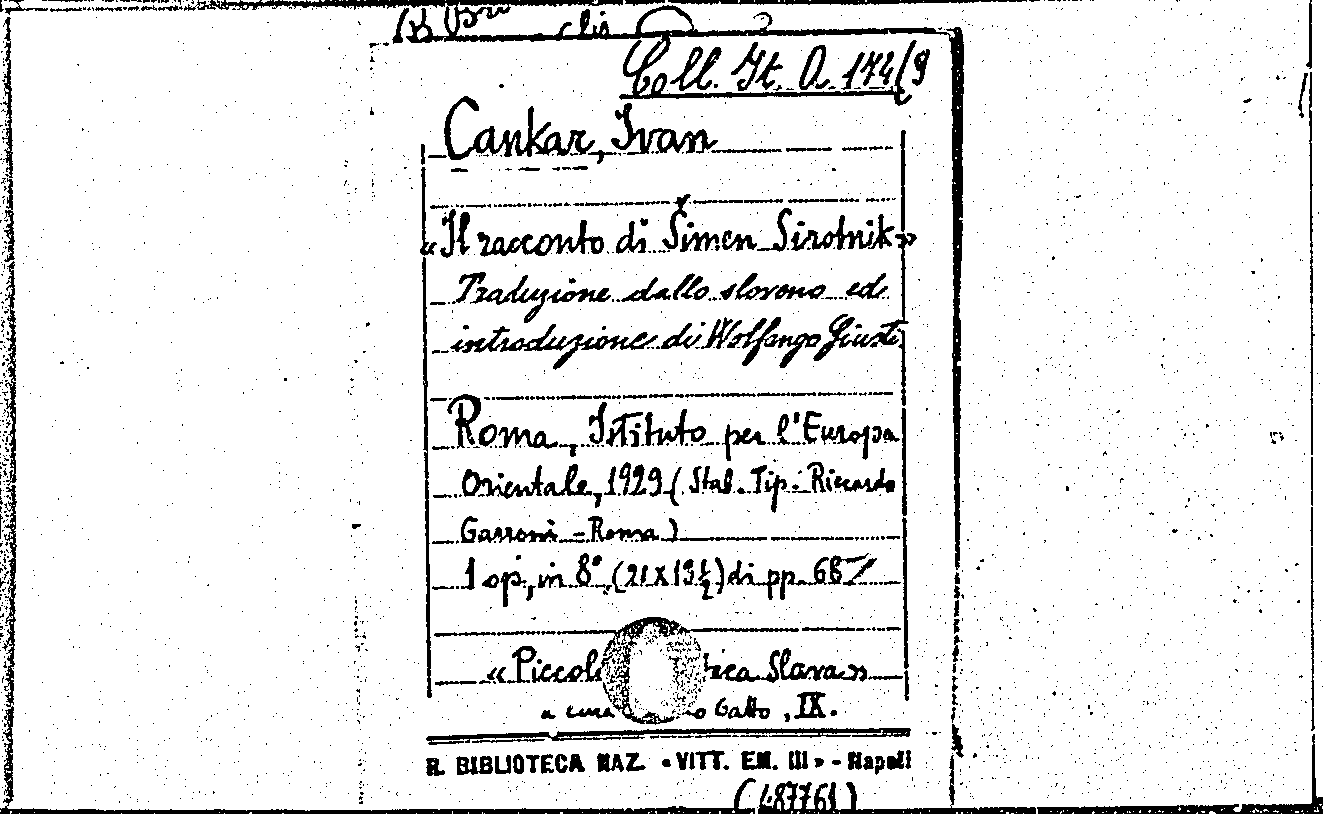 Coll. It. A. 174/9
Cankar, Ivan
«Il racconto di Šimen Sirotnik»
Traduzione dallo sloveno ed
introduzione di Wolfango Giusti
Roma, Istituto per l'Europa
Orientale, 1929 (Stab. Tip. Riccardo
Garroni - Roma)
1 op, in 8° (21x13½) di pp. 68
«Piccol Slava»
a cura Gatto, IX.
R. BIBLIOTECA NAZ. «VITT. EM. III» - Napoli
(487761)